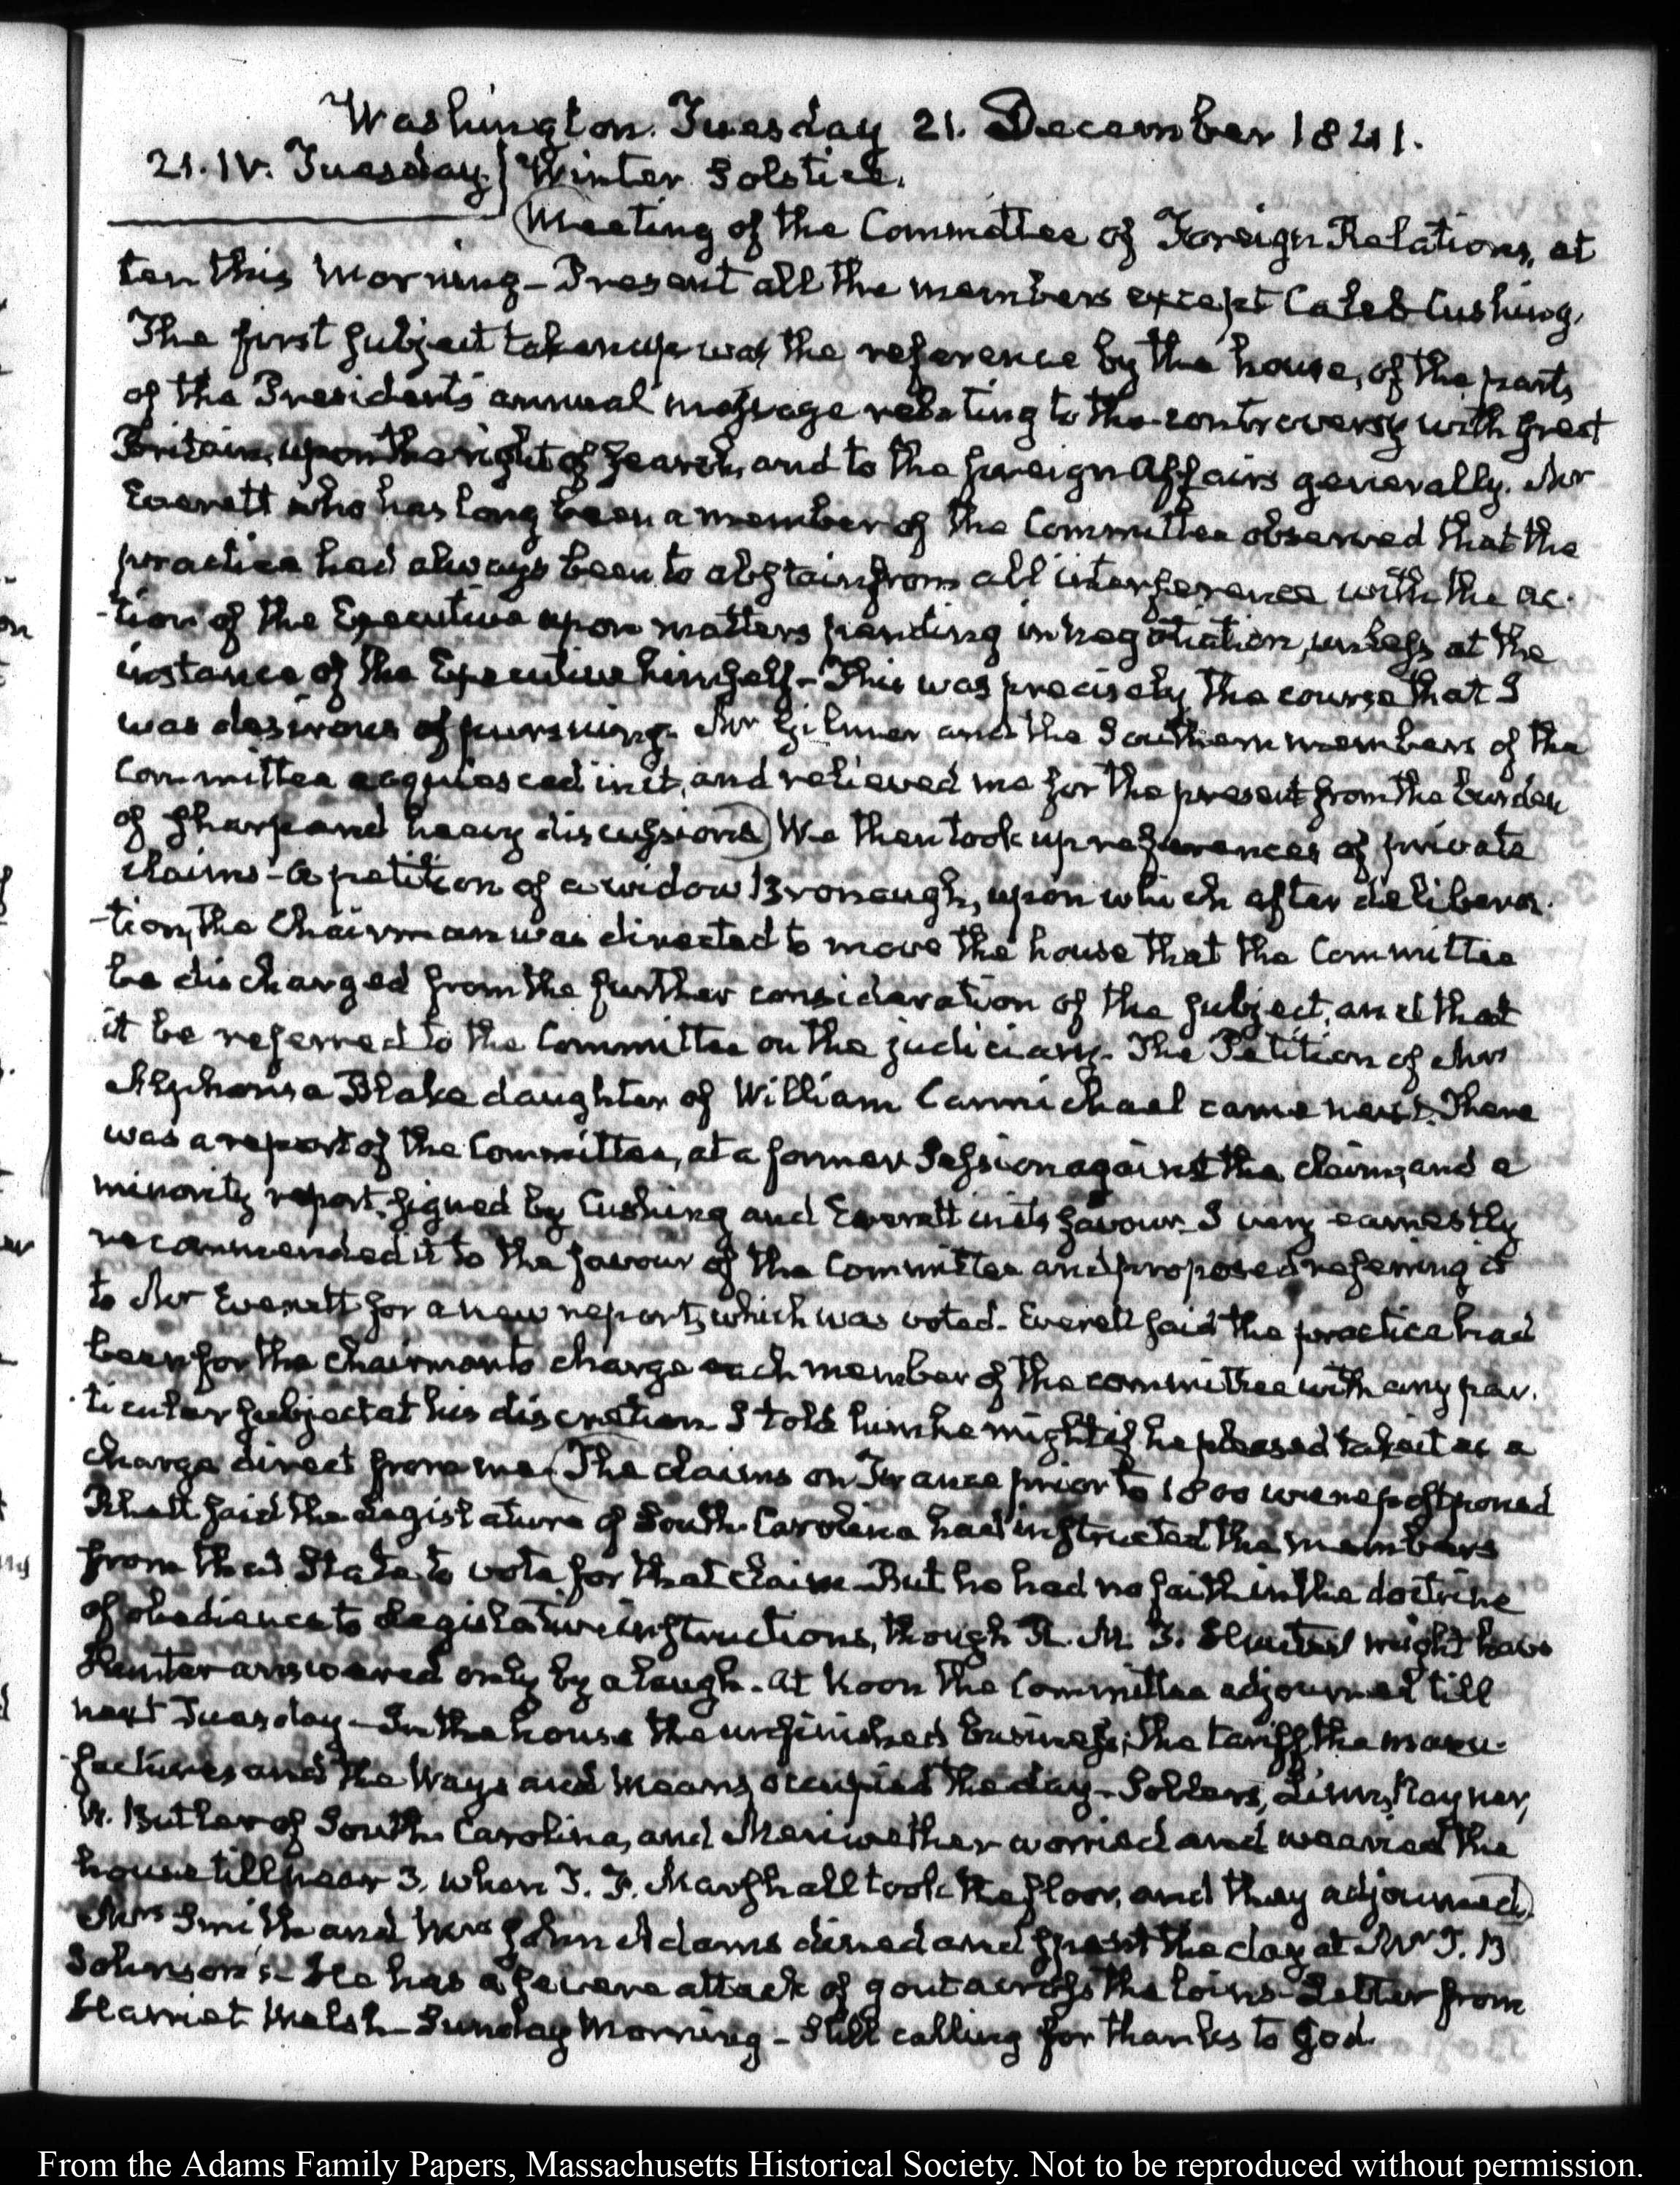 Washington. Tuesday 21. December 1841.
21. IV. Tuesday.} Winter Solstice.
(Meeting of the Committee of Foreign Relations, at
ten this Morning – Present all the members except Caleb Cushing,
The first subject taken up was the reference by the house, of the parts
of the President's annual message relating to the controversy with great
Britain, upon the right of search, and to the foreign Affairs generally. Mr
Everett who has long been a member of the Committee observed that the
practice had always been to abstain from all interference with the ac-
-tion of the Executive upon matters pending in negotiation, unless at the
instance of the Executive himself – This was precisely the course that I
was desirous of pursuing. Mr Gilmer and the Southern members of the
Committee acquiesced in it, and relieved me for the present from the burden
of sharp and heavy discussions) We then took up references of private
claims – A petition of a widow Bronaugh, upon which after delibera-
-tion, the Chairman was directed to move the house that the Committee
be discharged from the further consideration of the subject, and that
it be referred to the Committee on the judiciary. The Petition of Mrs
Alphonsa Blake daughter of William Carmichael came next. There
was a report of the Committee, at a former Session against the claim, and a
minority report signed by Cushing and Everett in its favour. I very earnestly
recommended it to the favour of the Committee and proposed referring it
to Mr Everett for a new report, which was voted. Everett said the practice had
been for the chairman to charge each member of the committee with any par-
-ticular subject at his discretion. I told him he might if he pleased take it as a
charge direct from me. (The claims on France prior to 1800 were postponed
Rhett said the Legislature of South-Carolina had instructed the members
from that State to vote for that claim – But he had no faith in the doctrine
of obedience to Legislative instructions, though R. M. T. Hunter might have
Hunter answered only by a laugh. At Noon the Committee adjourned till
next Tuesday – In the house the unfinished business; the tariff the manu-
-factures and the Ways and Means, occupied the day – Sollers, Linn, Rayner,
W. Butler of South Carolina, and Meriwether worried and wearied the
house till near 3. when T. F. Marshall took the floor, and they adjourned)
Mrs Smith and Mrs John Adams dined and spent the day at Mr T. B
Johnson's – He has a severe attack of gout across the loins – Letter from
Harriet Welsh – Sunday Morning – Still calling for thanks to God.
From the Adams Family Papers, Massachusetts Historical Society. Not to be reproduced without permission.